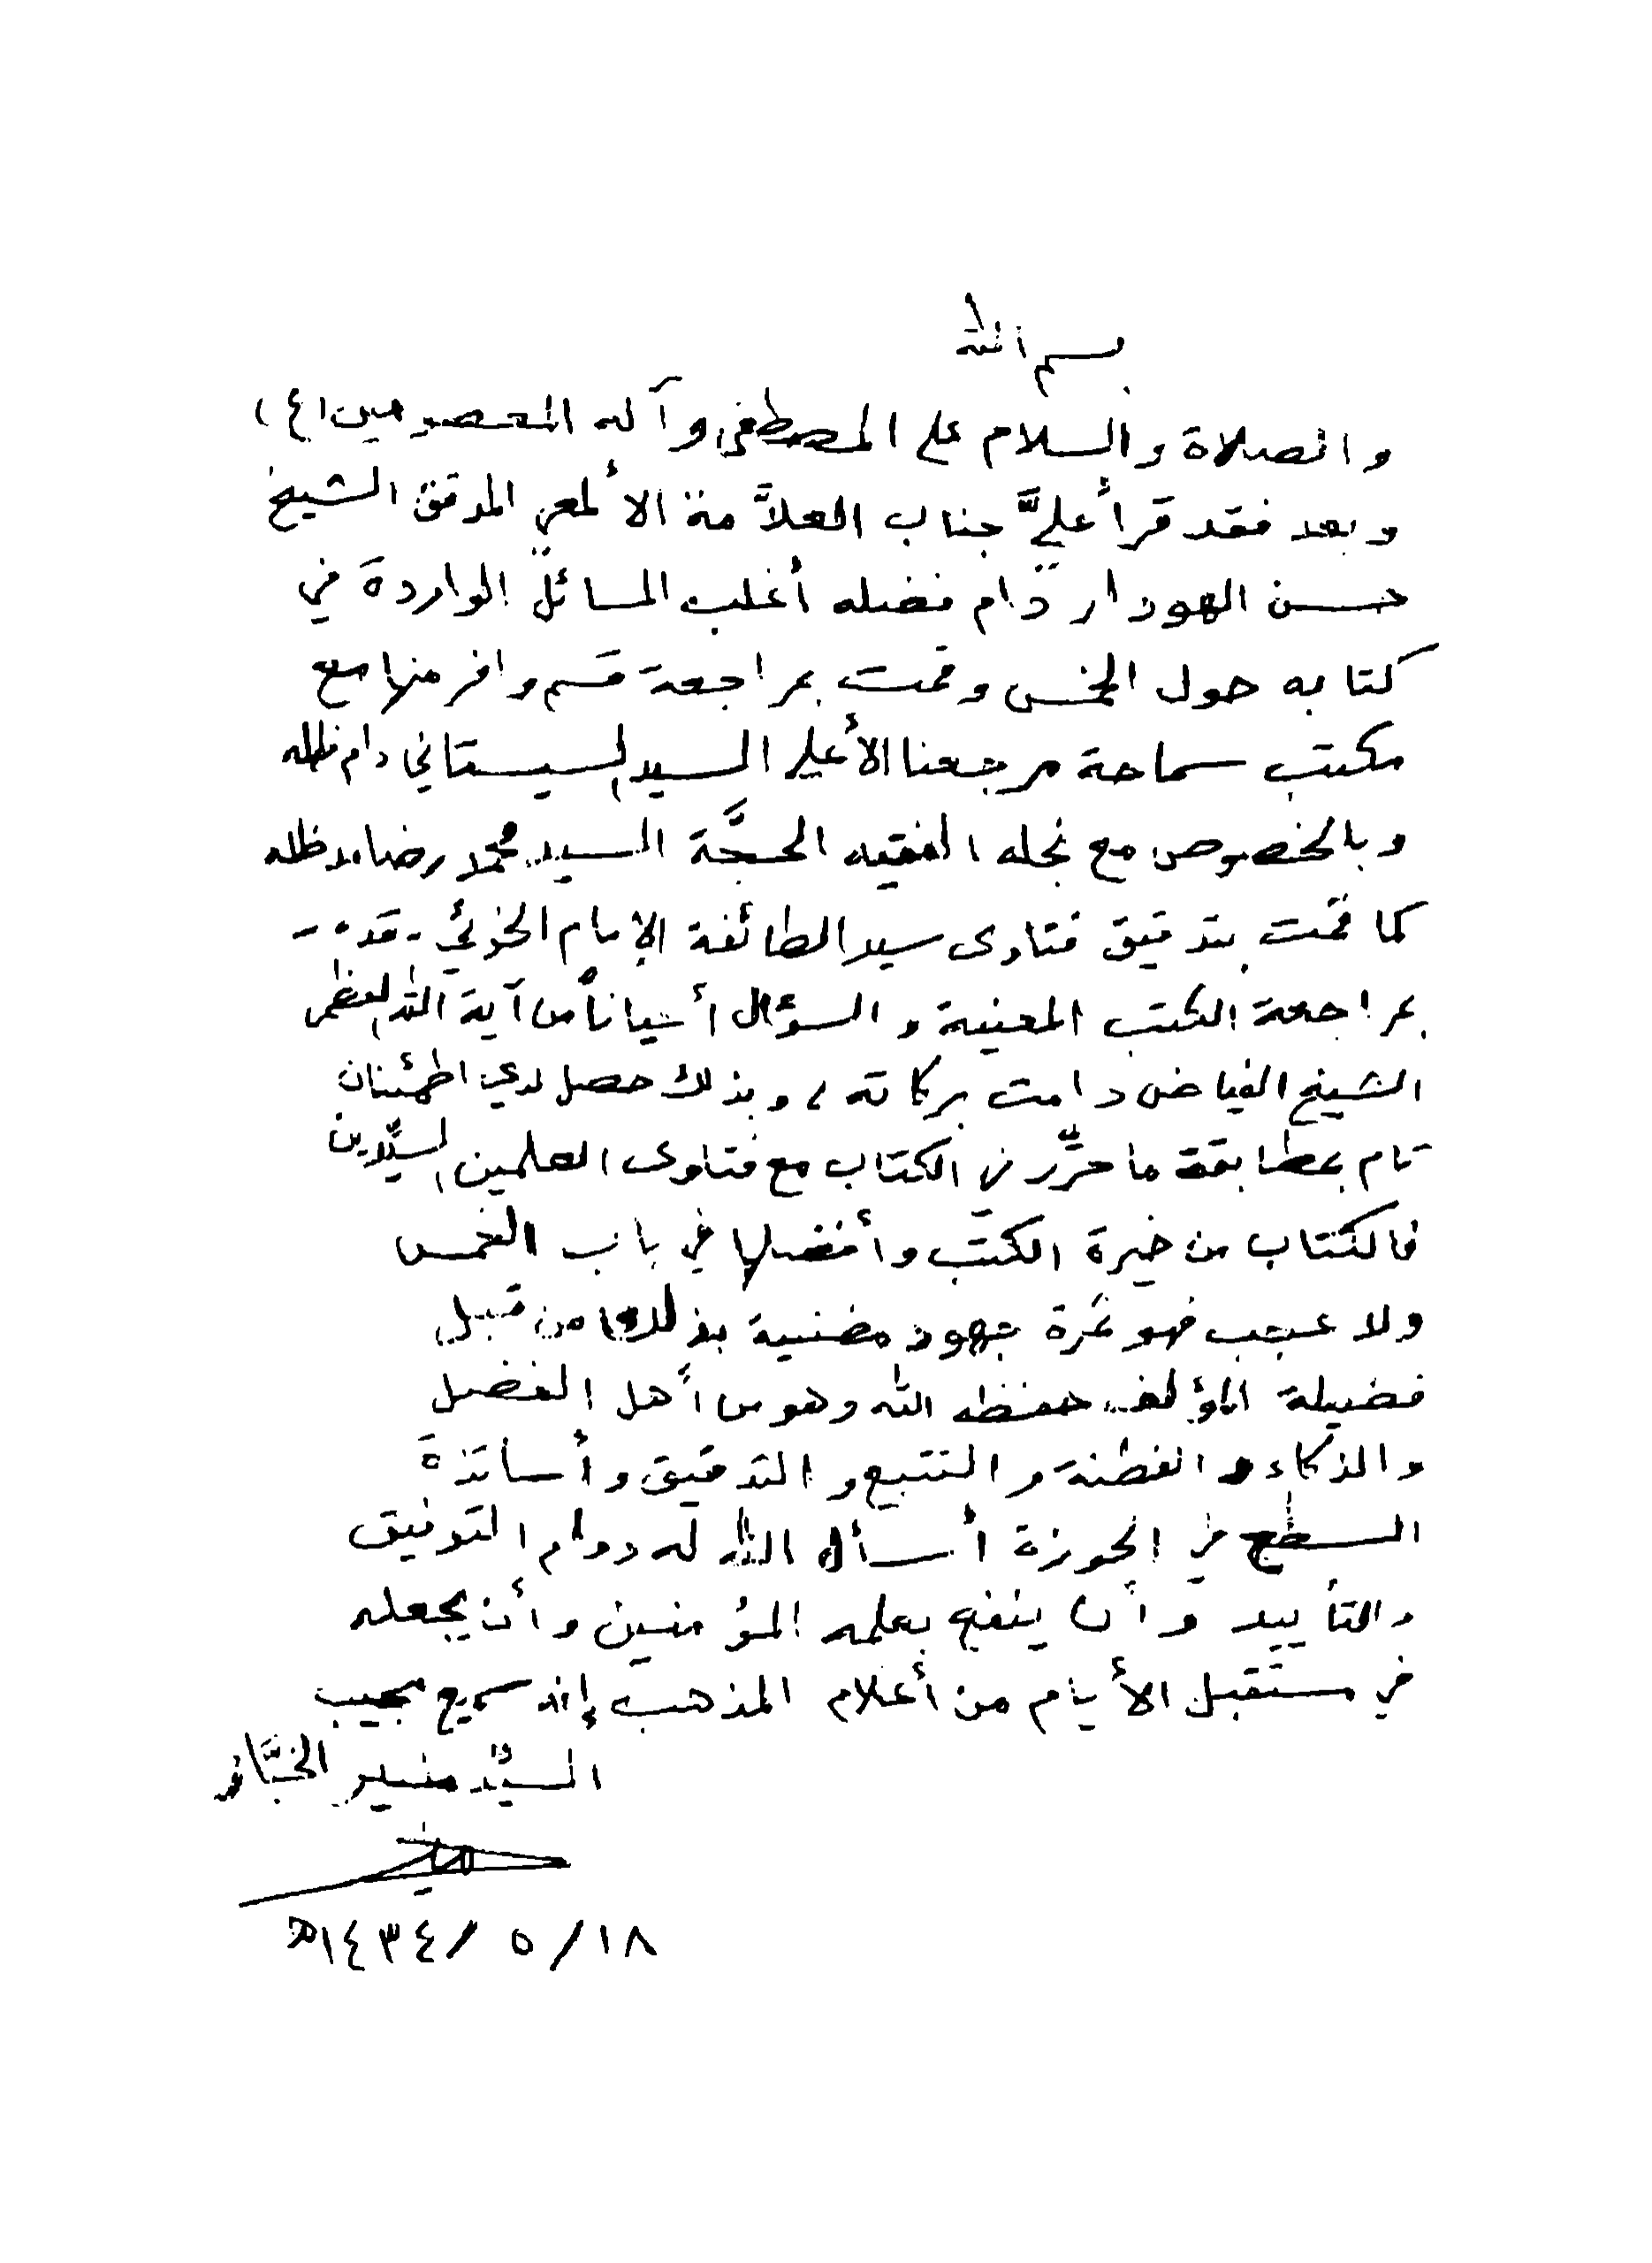 بسم الله
والصلاة والسلام على المصطفى وآله المعصومين (ع)
وبعد فقد قرأ عليَّ جناب العلاَّمة الألمعي المدقق الشيخ
حسن الهودار دام فضله أغلب المسائل الواردة في
كتابه حول الخمس وقمت بمراجعة قسم وافر منها مع
مكتب سماحة مرجعنا الأعلى السيد السيستاني دام ظله
وبالخصوص مع نجله الفقيه الحجَّة السيد محمد رضا مد ظله
كما قمت بتدقيق فتاوى سيد الطائفة الإمام الخوئي - قده -
بمراجعة الكتب المعنية والسؤال أحياناً من آية الله العظمى
الشيخ الفياض دامت بركاته، وبذلك حصل لدي اطمئنان
تام بمطابقة ما حرِّر في الكتاب مع فتاوى العلمين السيِّدين
فالكتاب من خيرة الكتب وأفضلها في باب الخمس
ولا عجب فهو ثمرة جهود مضنية بذلها من قبل
فضيلة المؤلف حفظه الله وهو من أهل الفضل
والذكاء والفطنة والتتبع والتدقيق وأساتذة
السطح في الحوزة أسأل الله له دوام التوفيق
والتأييد وأن ينفع بعلمه المؤمنين وأن يجعله
في مستقبل الأيام من أعلام المذهب إنه سميع مجيب
السيِّد منير الخبَّاز
١٨/٥/١٤٣٤هـ